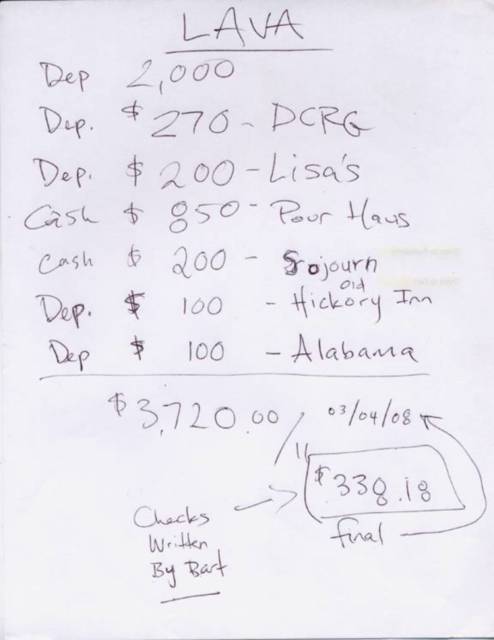 LAVA
Dep 2,000
Dep. $ 270 - DCRG
Dep. $ 200 - Lisa's
Cash $ 850 - Pour Haus
Cash $ 200 - Sojourn
Dep. $ 100 - Old Hickory Inn
Dep $ 100 - Alabama
$3,720.00 / 03/04/08
$338.18
final
Checks
Written
By Bart